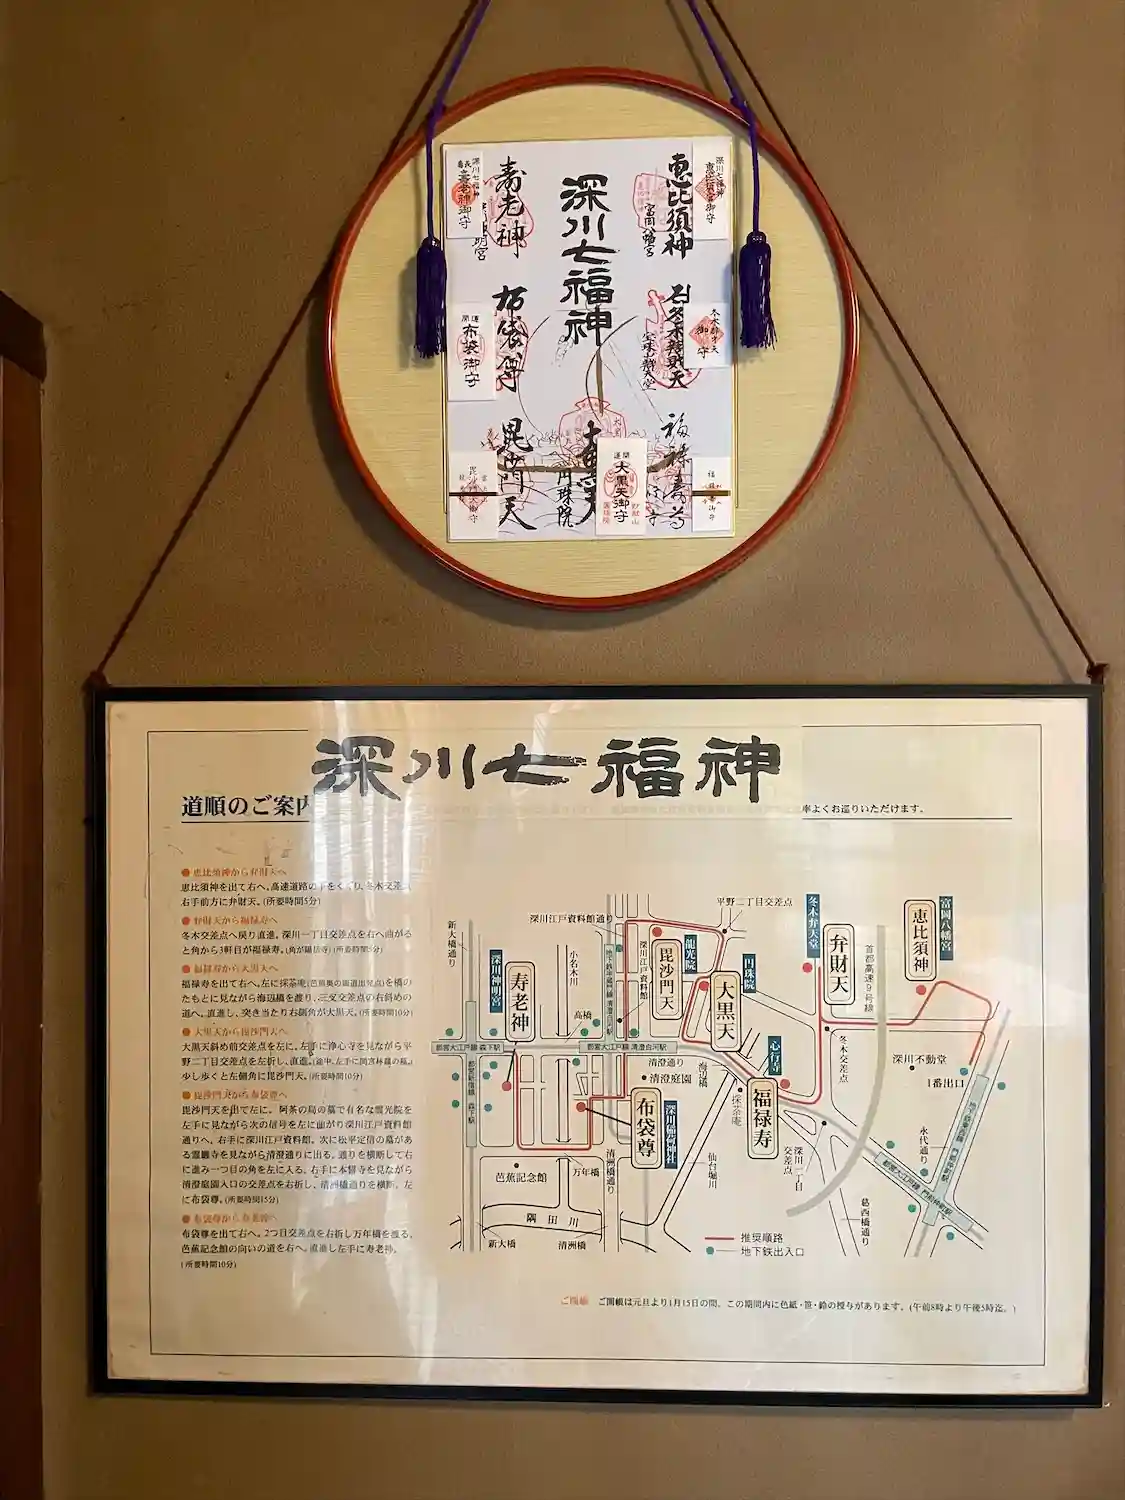 深川七福神
恵比須神
富岡八幡宮
冬木弁財天
福禄寿尊
大黒天
円珠院
毘沙門天
布袋尊
寿老神
深川七福神
寿老神御守
深川七福神
恵比須宮御守
開運
布袋御守
御守
開運
大黒天御守
深川七福神
道順のご案内
率よくお巡りいただけます。
● 恵比須神から弁財天へ
恵比須神を出て右へ。高速道路の下をくぐり、冬木交差点
右手前方に弁財天。(所要時間5分)
● 弁財天から福禄寿へ
冬木交差点へ戻り直進。深川一丁目交差点を右へ曲がる
と角から3軒目が福禄寿。(角が陽岳寺)(所要時間5分)
● 福禄寿から大黒天へ
福禄寿を出て右へ。左に採茶庵(芭蕉奥の細道出発点)を橋の
たもとに見ながら海辺橋を渡り、三叉交差点の右斜めの
道へ。直進し、突き当たり右側角が大黒天。(所要時間10分)
● 大黒天から毘沙門天へ
大黒天斜め前交差点を左に。左手に浄心寺を見ながら平
野二丁目交差点を左折し、直進。(途中、左手に間宮林蔵の墓。)
少し歩くと左側角に毘沙門天。(所要時間10分)
● 毘沙門天から布袋尊へ
毘沙門天を出て左に。阿茶の局の墓で有名な雲光院を
左手に見ながら次の信号を左に曲がり深川江戸資料館
通りへ。右手に深川江戸資料館。次に松平定信の墓があ
る霊巌寺を見ながら清澄通りに出る。通りを横断して右
に進み一つ目の角を左に入る。右手に本誓寺を見ながら
清澄庭園入口の交差点を右折し、清洲橋通りを横断。左
に布袋尊。(所要時間15分)
● 布袋尊から寿老神へ
布袋尊を出て右へ。2つ目交差点を右折し万年橋を渡る。
芭蕉記念館の向いの道を右へ。直進し左手に寿老神。
(所要時間10分)
新大橋通り
深川神明宮
寿老神
小名木川
高橋
深川江戸資料館通り
地下鉄半蔵門線 清澄白河駅
深川江戸資料館
毘沙門天
龍光院
平野二丁目交差点
大黒天
円珠院
心行寺
福禄寿
冬木弁天堂
弁財天
首都高速9号線
恵比須神
富岡八幡宮
都営大江戸線 森下駅
都営新宿線 森下駅
都営大江戸線 清澄白河駅
清澄通り
清澄庭園
海辺橋
採茶庵
冬木交差点
深川不動堂
1番出口
布袋尊
深川稲荷神社
芭蕉記念館
万年橋
清洲橋通り
仙台堀川
深川一丁目交差点
永代通り
地下鉄東西線 門前仲町駅
都営大江戸線 門前仲町駅
葛西橋通り
隅田川
新大橋
清洲橋
推奨順路
地下鉄出入口
ご開帳 ご開帳は元旦より1月15日の間。この期間内に色紙・笹・鈴の授与があります。(午前8時より午後5時迄。)